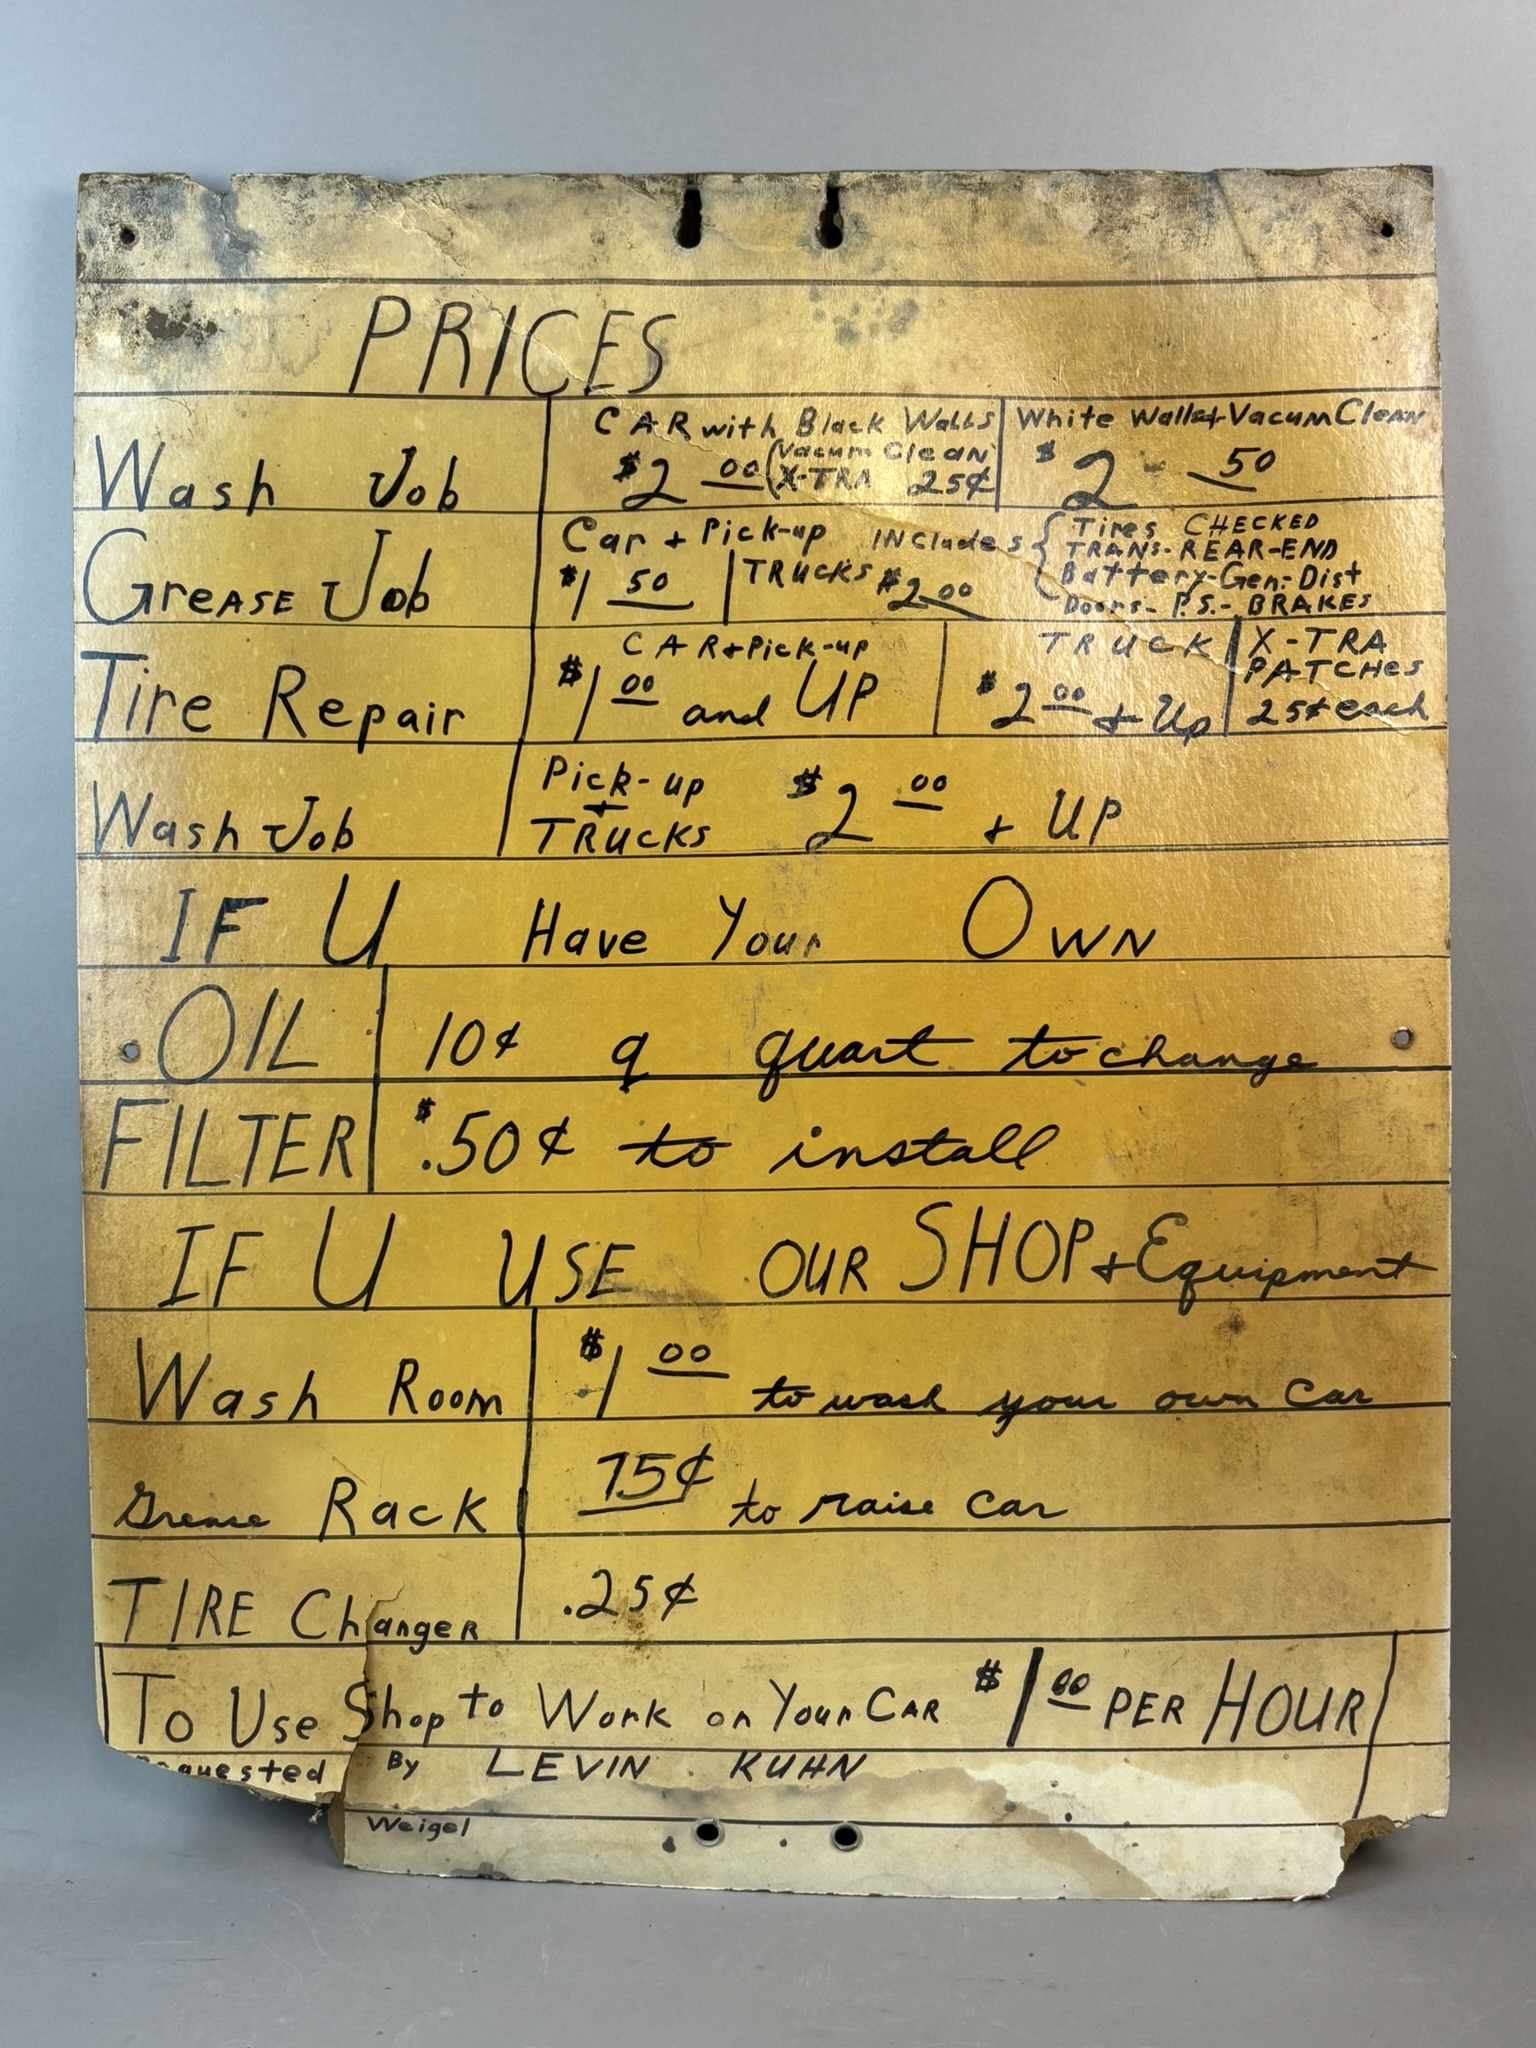 PRICES
Wash Job
CAR with Black Walls
$2 00 (Vacum Clean
X-TRA 25¢
White Walls + Vacum Clean
$2 50
Grease Job
Car + Pick-up
$1 50
TRUCKS $2 00
INCludes { Tires CHECKED
TRANS-REAR-END
Battery-Gen-Dist
Doors-P.S.-BRAKES
Tire Repair
CAR + Pick-up
$1 00 and UP
TRUCK
$2 00 + Up
X-TRA
PATCHES
25¢ each
Wash Job
Pick-up
+
TRUCKS
$2 00 + UP
IF U Have Your OWN
OIL
10¢ a quart to change
FILTER
$.50¢ to install
IF U USE OUR SHOP + Equipment
Wash Room
$1 00 to wash your own car
Grease Rack
75¢ to raise car
TIRE Changer
.25¢
To Use Shop to Work on Your CAR $1 00 PER HOUR
equested By LEVIN KUHN
Weigel